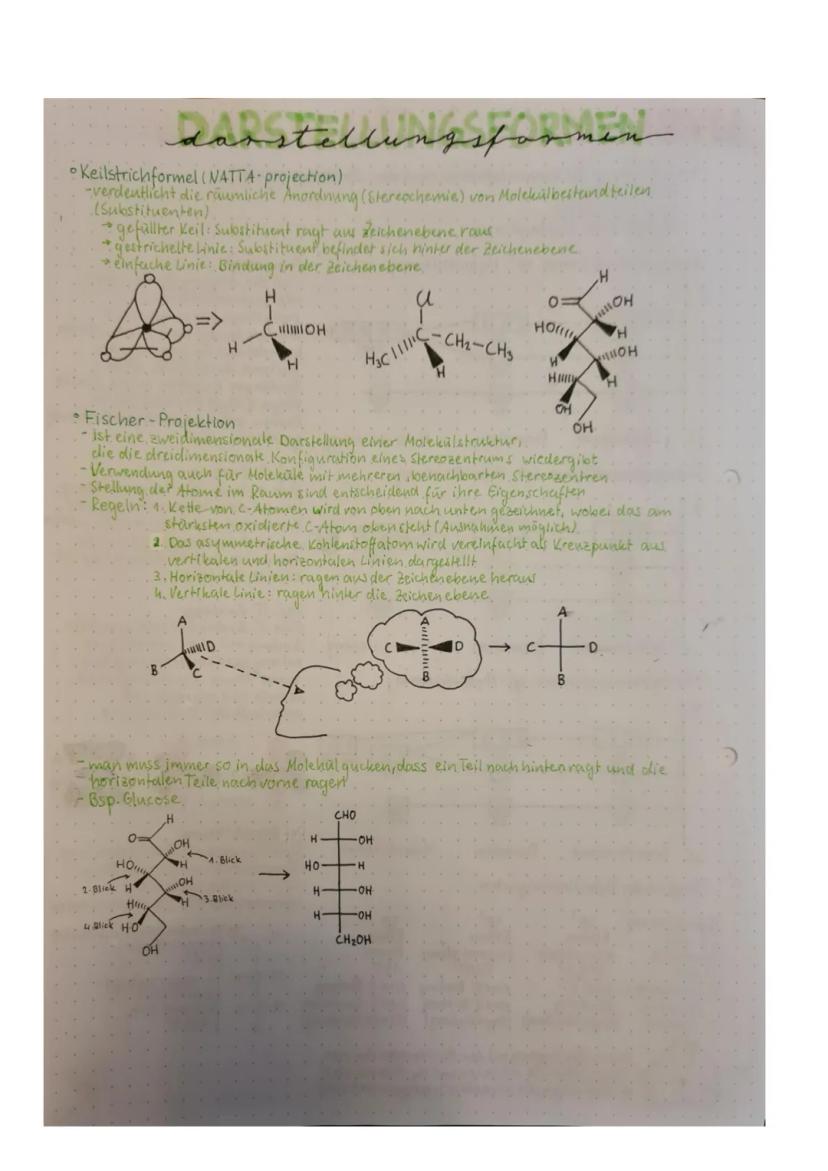 DARSTELLUNGSFORMEN
darstellungsformen
° Keilstrichformel (NATTA-projection)
- verdeutlicht die räumliche Anordnung (Stereochemie) von Molekülbestandteilen
(Substituenten)
→ gefüllter Keil: Substituent ragt aus Zeichenebene raus
→ gestrichelte Linie: Substituent befindet sich hinter der Zeichenebene
→ einfache Linie: Bindung in der Zeichenebene
=>
H
C OH
H
H
Cl
C-CH₂-CH₃
H₃C
H
H
O
OH
HO
H
H
OH
H
H
OH
OH
° Fischer-Projektion
- ist eine zweidimensionale Darstellung einer Molekülstruktur,
die die dreidimensionale Konfiguration eines Stereozentrums wiedergibt
- Verwendung auch für Moleküle mit mehreren, benachbarten Stereozentren
- Stellung der Atome im Raum sind entscheidend für ihre Eigenschaften
- Regeln: 1. Kette von C-Atomen wird von oben nach unten gezeichnet, wobei das am
stärksten oxidierte C-Atom oben steht (Ausnahmen möglich)
2. Das asymmetrische Kohlenstoffatom wird vereinfacht als Kreuzpunkt aus
vertikalen und horizontalen Linien dargestellt
3. Horizontale Linien: ragen aus der Zeichenebene heraus
4. Vertikale Linie: ragen hinter die Zeichenebene
A
D
B
C
A
C D
B
→
A
C D
B
- man muss immer so in das Molekül gucken, dass ein Teil nach hinten ragt und die
- horizontalen Teile nach vorne ragen
- Bsp. Glucose
H
O
OH
H
1. Blick
HO
2. Blick H
OH
H
3. Blick
H
4. Blick HO
OH
→
CHO
H OH
HO H
H OH
H OH
CH₂OH